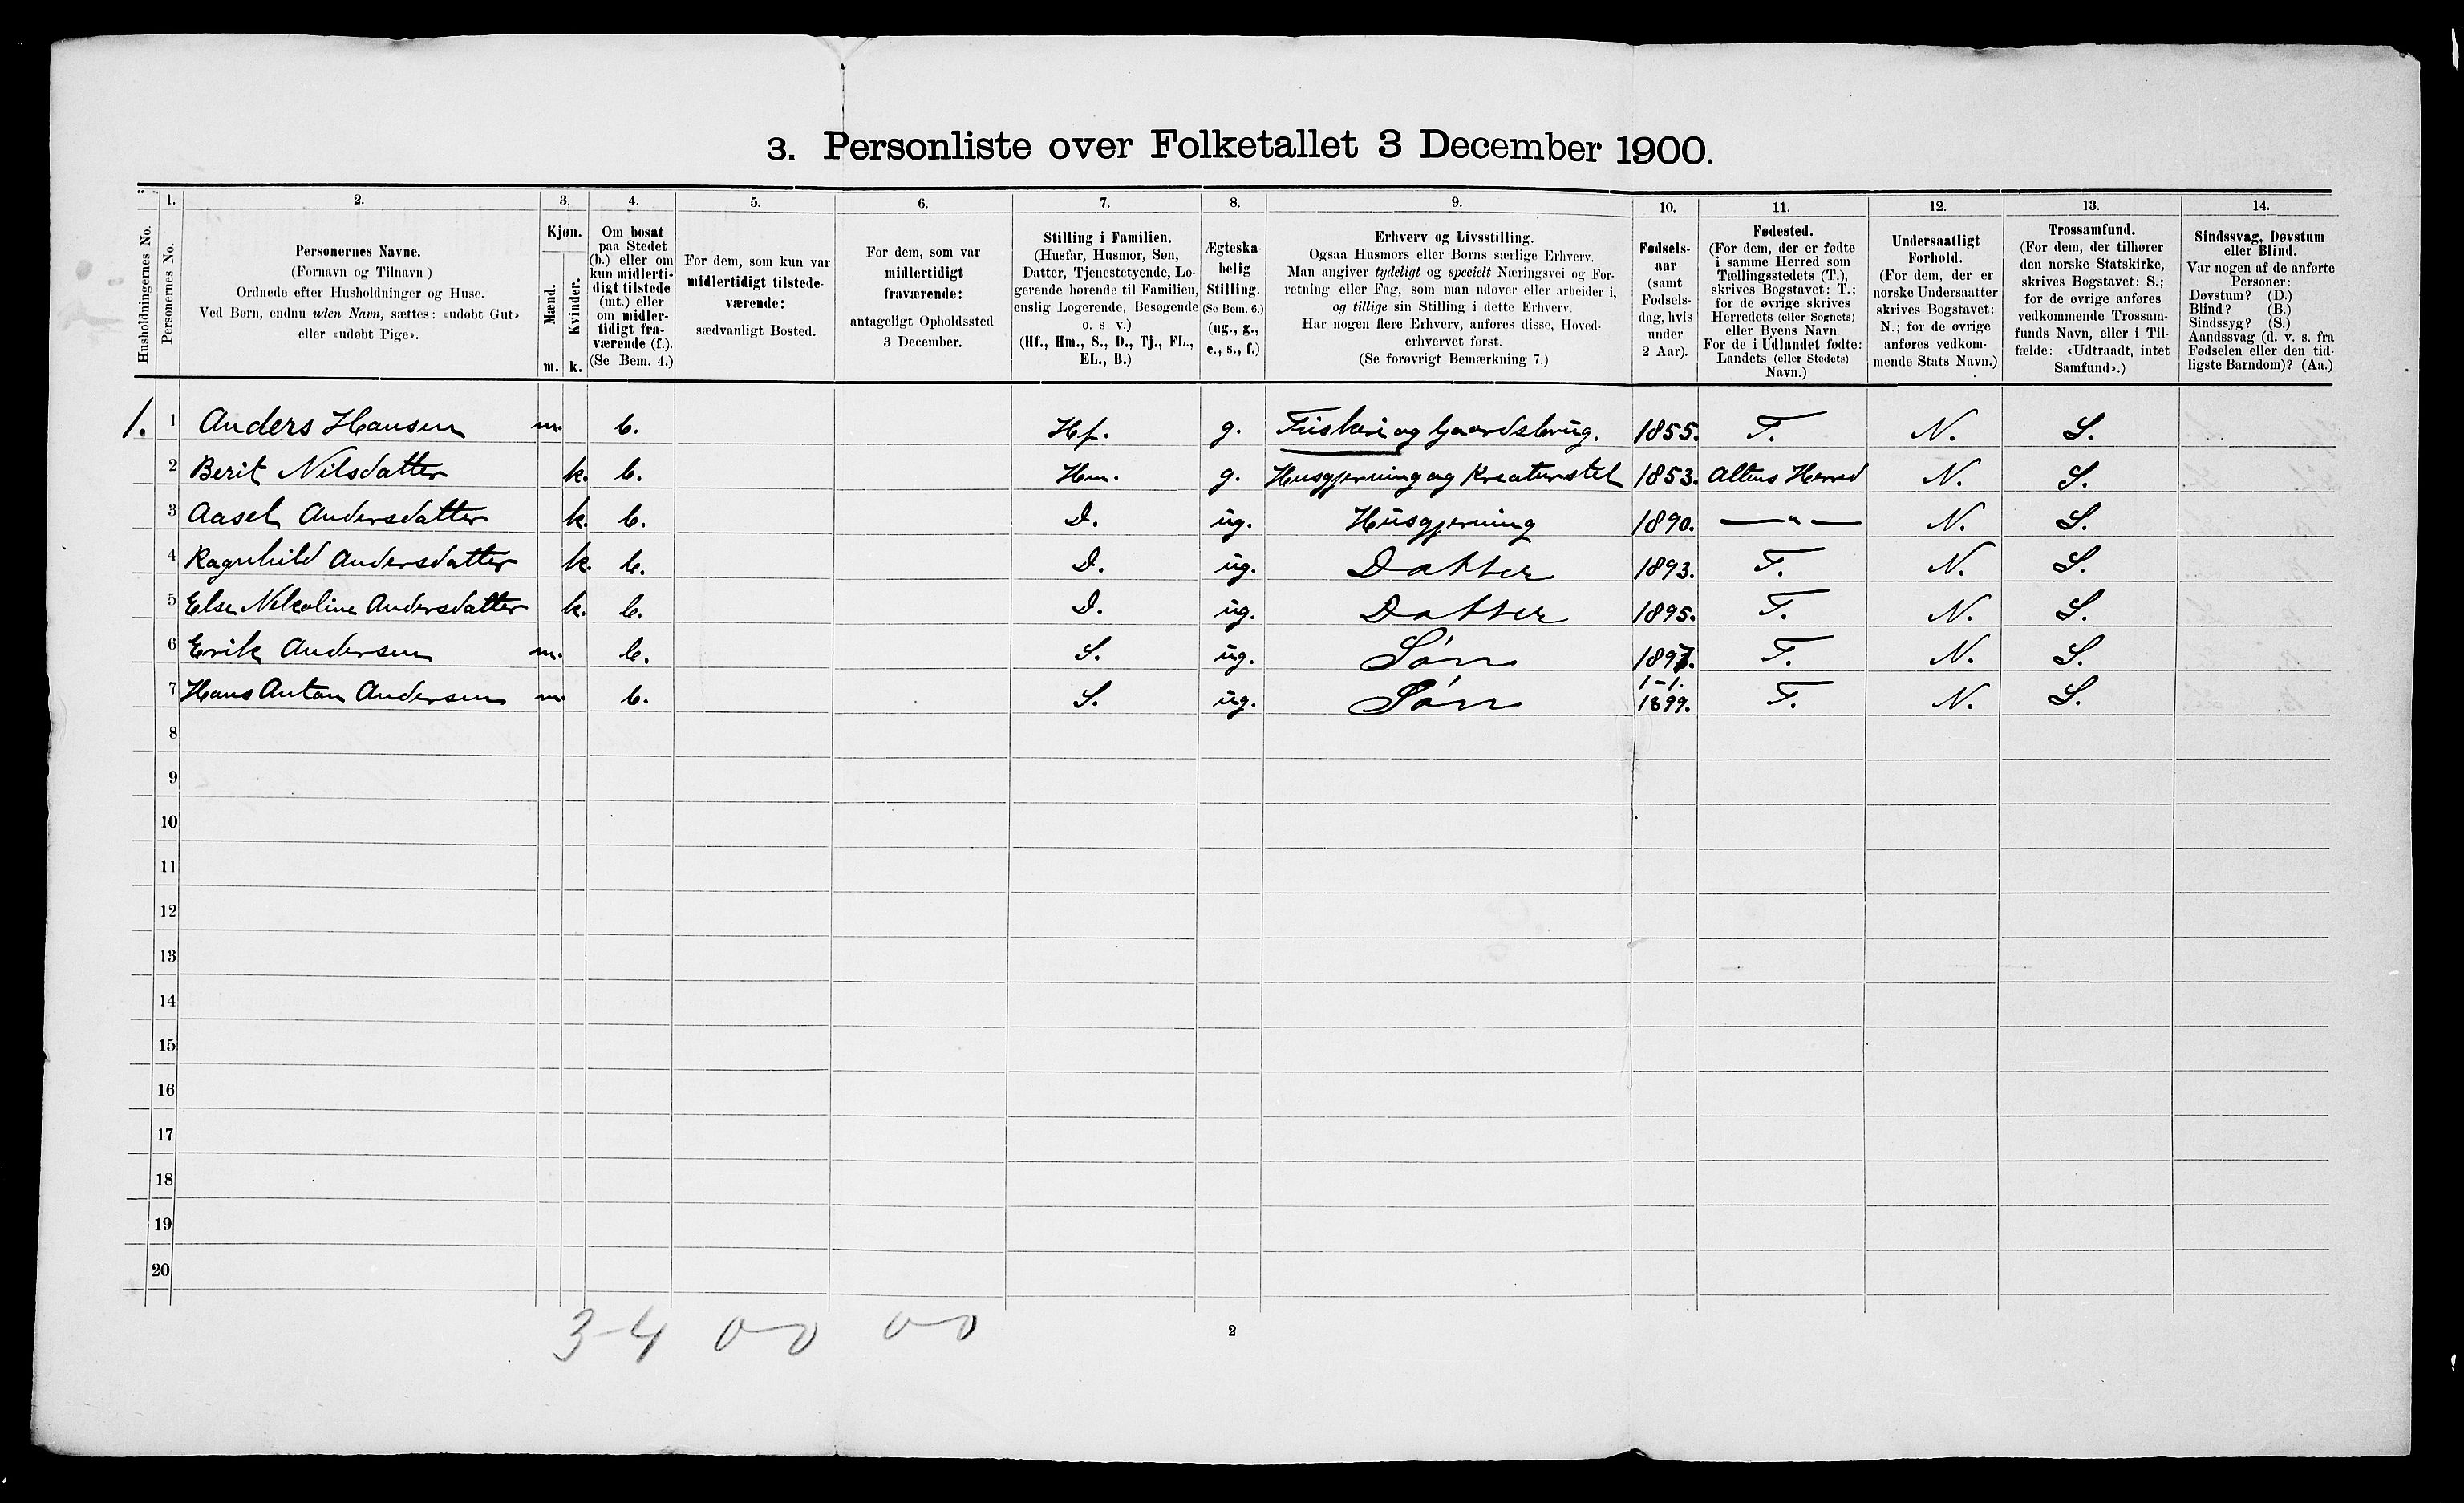 3. Personliste over Folketallet 3 December 1900.
1. 2. 3. 4. 5. 6. 7. 8. 9. 10. 11. 12. 13. 14.
Husholdningernes No.
Personernes No.
Personernes Navne.
(Fornavn og Tilnavn)
Ordnede efter Husholdninger og Huse.
Ved Børn, endnu uden Navn, sættes: «udøbt Gut»
eller «udøbt Pige».
Kjøn.
Mænd.
Kvinder.
m. k.
Om bosat
paa Stedet
(b.) eller om
kun midlerti-
digt tilstede
(mt.) eller
om midler-
tidigt fra-
værende (f.).
(Se Bem. 4.)
For dem, som kun var
midlertidigt tilstede-
værende:
sædvanligt Bosted.
For dem, som var
midlertidigt
fraværende:
antageligt Opholdssted
3 December.
Stilling i Familien.
(Husfar, Husmor, Søn,
Datter, Tjenestetyende, Lo-
gerende hørende til Familien,
enslig Logerende, Besøgende
o. s v.)
(Hf., Hm., S., D., Tj., FL.,
EL., B.)
Ægteska-
belig
Stilling.
(Se Bem. 6.)
(ug., g.,
e., s., f.)
Erhverv og Livsstilling.
Ogsaa Husmors eller Børns særlige Erhverv.
Man angiver tydeligt og specielt Næringsvei og For-
retning eller Fag, som man udøver eller arbeider i,
og tillige sin Stilling i dette Erhverv.
Har nogen flere Erhverv, anføres disse, Hoved-
erhvervet først.
(Se forøvrigt Bemærkning 7.)
Fødsels-
aar
(samt
Fødsels-
dag, hvis
under
2 Aar).
Fødested.
(For dem, der er fødte
i samme Herred som
Tællingsstedets (T.),
skrives Bogstavet: T.;
for de øvrige skrives
Herredets (eller Sognets)
eller Byens Navn.
For de i Udlandet fødte:
Landets (eller Stedets)
Navn.)
Undersaatligt
Forhold.
(For dem, der er
norske Undersaatter
skrives Bogstavet:
N.; for de øvrige
anføres vedkom-
mende Stats Navn.)
Trossamfund.
(For dem, der tilhører
den norske Statskirke,
skrives Bogstavet: S.;
for de øvrige anføres
vedkommende Trossam-
funds Navn, eller i Til-
fælde: «Udtraadt, intet
Samfund».)
Sindssvag, Døvstum
eller Blind.
Var nogen af de anførte
Personer:
Døvstum? (D.)
Blind? (B.)
Sindssyg? (S.)
Aandssvag (d. v. s. fra
Fødselen eller den tid-
ligste Barndom)? (Aa.)
1. 1 Anders Hansen m. b. Hf. g. Fiskeri og Gaardsbrug. 1855. T. N. S.
2 Berit Nilsdatter k. b. Hm. g. Husgjerning og Kreaturstel 1853. Altens Herred N. S.
3 Aasel Andersdatter k. b. D. ug. Husgjerning 1890. — " — N. S.
4 Ragnhild Andersdatter k. b. D. ug. Datter 1893. T. N. S.
5 Else Nikoline Andersdatter k. b. D. ug. Datter 1895. T. N. S.
6 Erik Andersen m. b. S. ug. Søn 1897. T. N. S.
7 Hans Anton Andersen m. b. S. ug. Søn 1-1. 1899. T. N. S.
8
9
10
11
12
13
14
15
16
17
18
19
20
3-4 0-0 0-0
2